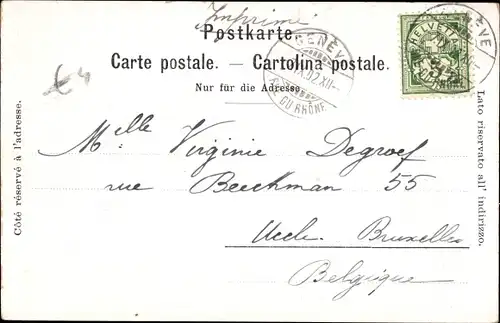 Imprimé
Postkarte.
Carte postale. — Cartolina postale.
Nur für die Adresse.
GENÈVE
IX.02.XII
RUE DU RHÔNE
HELVETIA
GENÈVE
£4
Côté réservé à l'adresse.
Lato riservato all' indirizzo.
Melle Virginie Degroef
rue Beeckman 55
Uccle. Bruxelles
Belgique